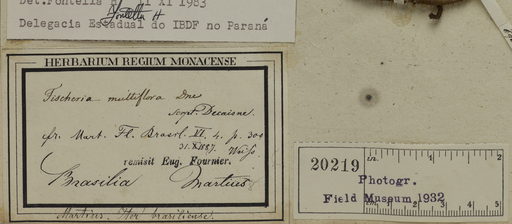 Det. Fontella P. XI 1983
Fontella
Delegacia Estadual do IBDF no Paraná
HERBARIUM REGIUM MONACENSE
Fischeria multiflora Dne
scrps. Decaisne.
cfr. Mart. Fl. Brasil. VI, 4. p. 300
31.X.1887.
remisit Eug. Fournier.
Brasilia Martius
Martius: Iter brasiliense.
20219
in. 1 2
Photogr.
Field Museum 1932
cm. 1 2 3 4 5